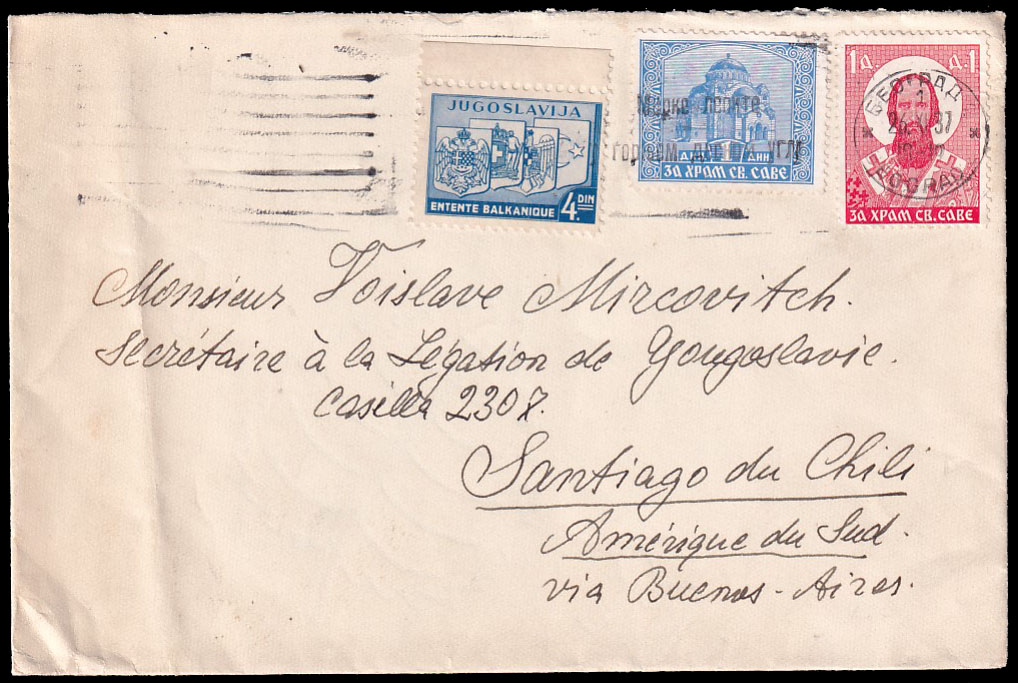 JUGOSLAVIJA
ENTENTE BALKANIQUE
4.- DIN
Марке лепите у
горњем десном углу
ЗА ХРАМ СВ. САВЕ
1 Д. Д. 1
ЗА ХРАМ СВ. САВЕ
БЕОГРАД
1
26. XI 37
BEOGRAD
Monsieur Voislave Mircovitch.
Secrétaire à la Légation de Yougoslavie.
Casilla 2307.
Santiago du Chili
Amérique du Sud.
via Buenos-Aires.